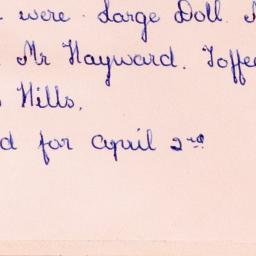 were. Large Doll.
Mr Hayward. Toffee
Hills.
d for April 2nd